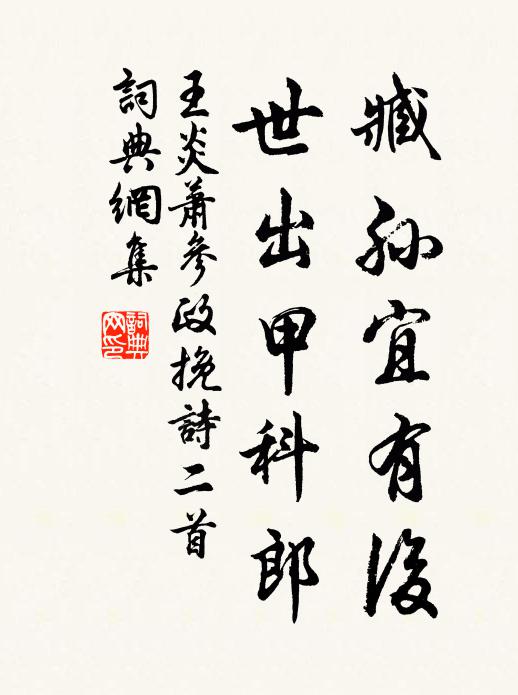 臧孫宜有後
世出甲科郎
王炎蕭參政挽詩二首
詞典網集
詞典網印